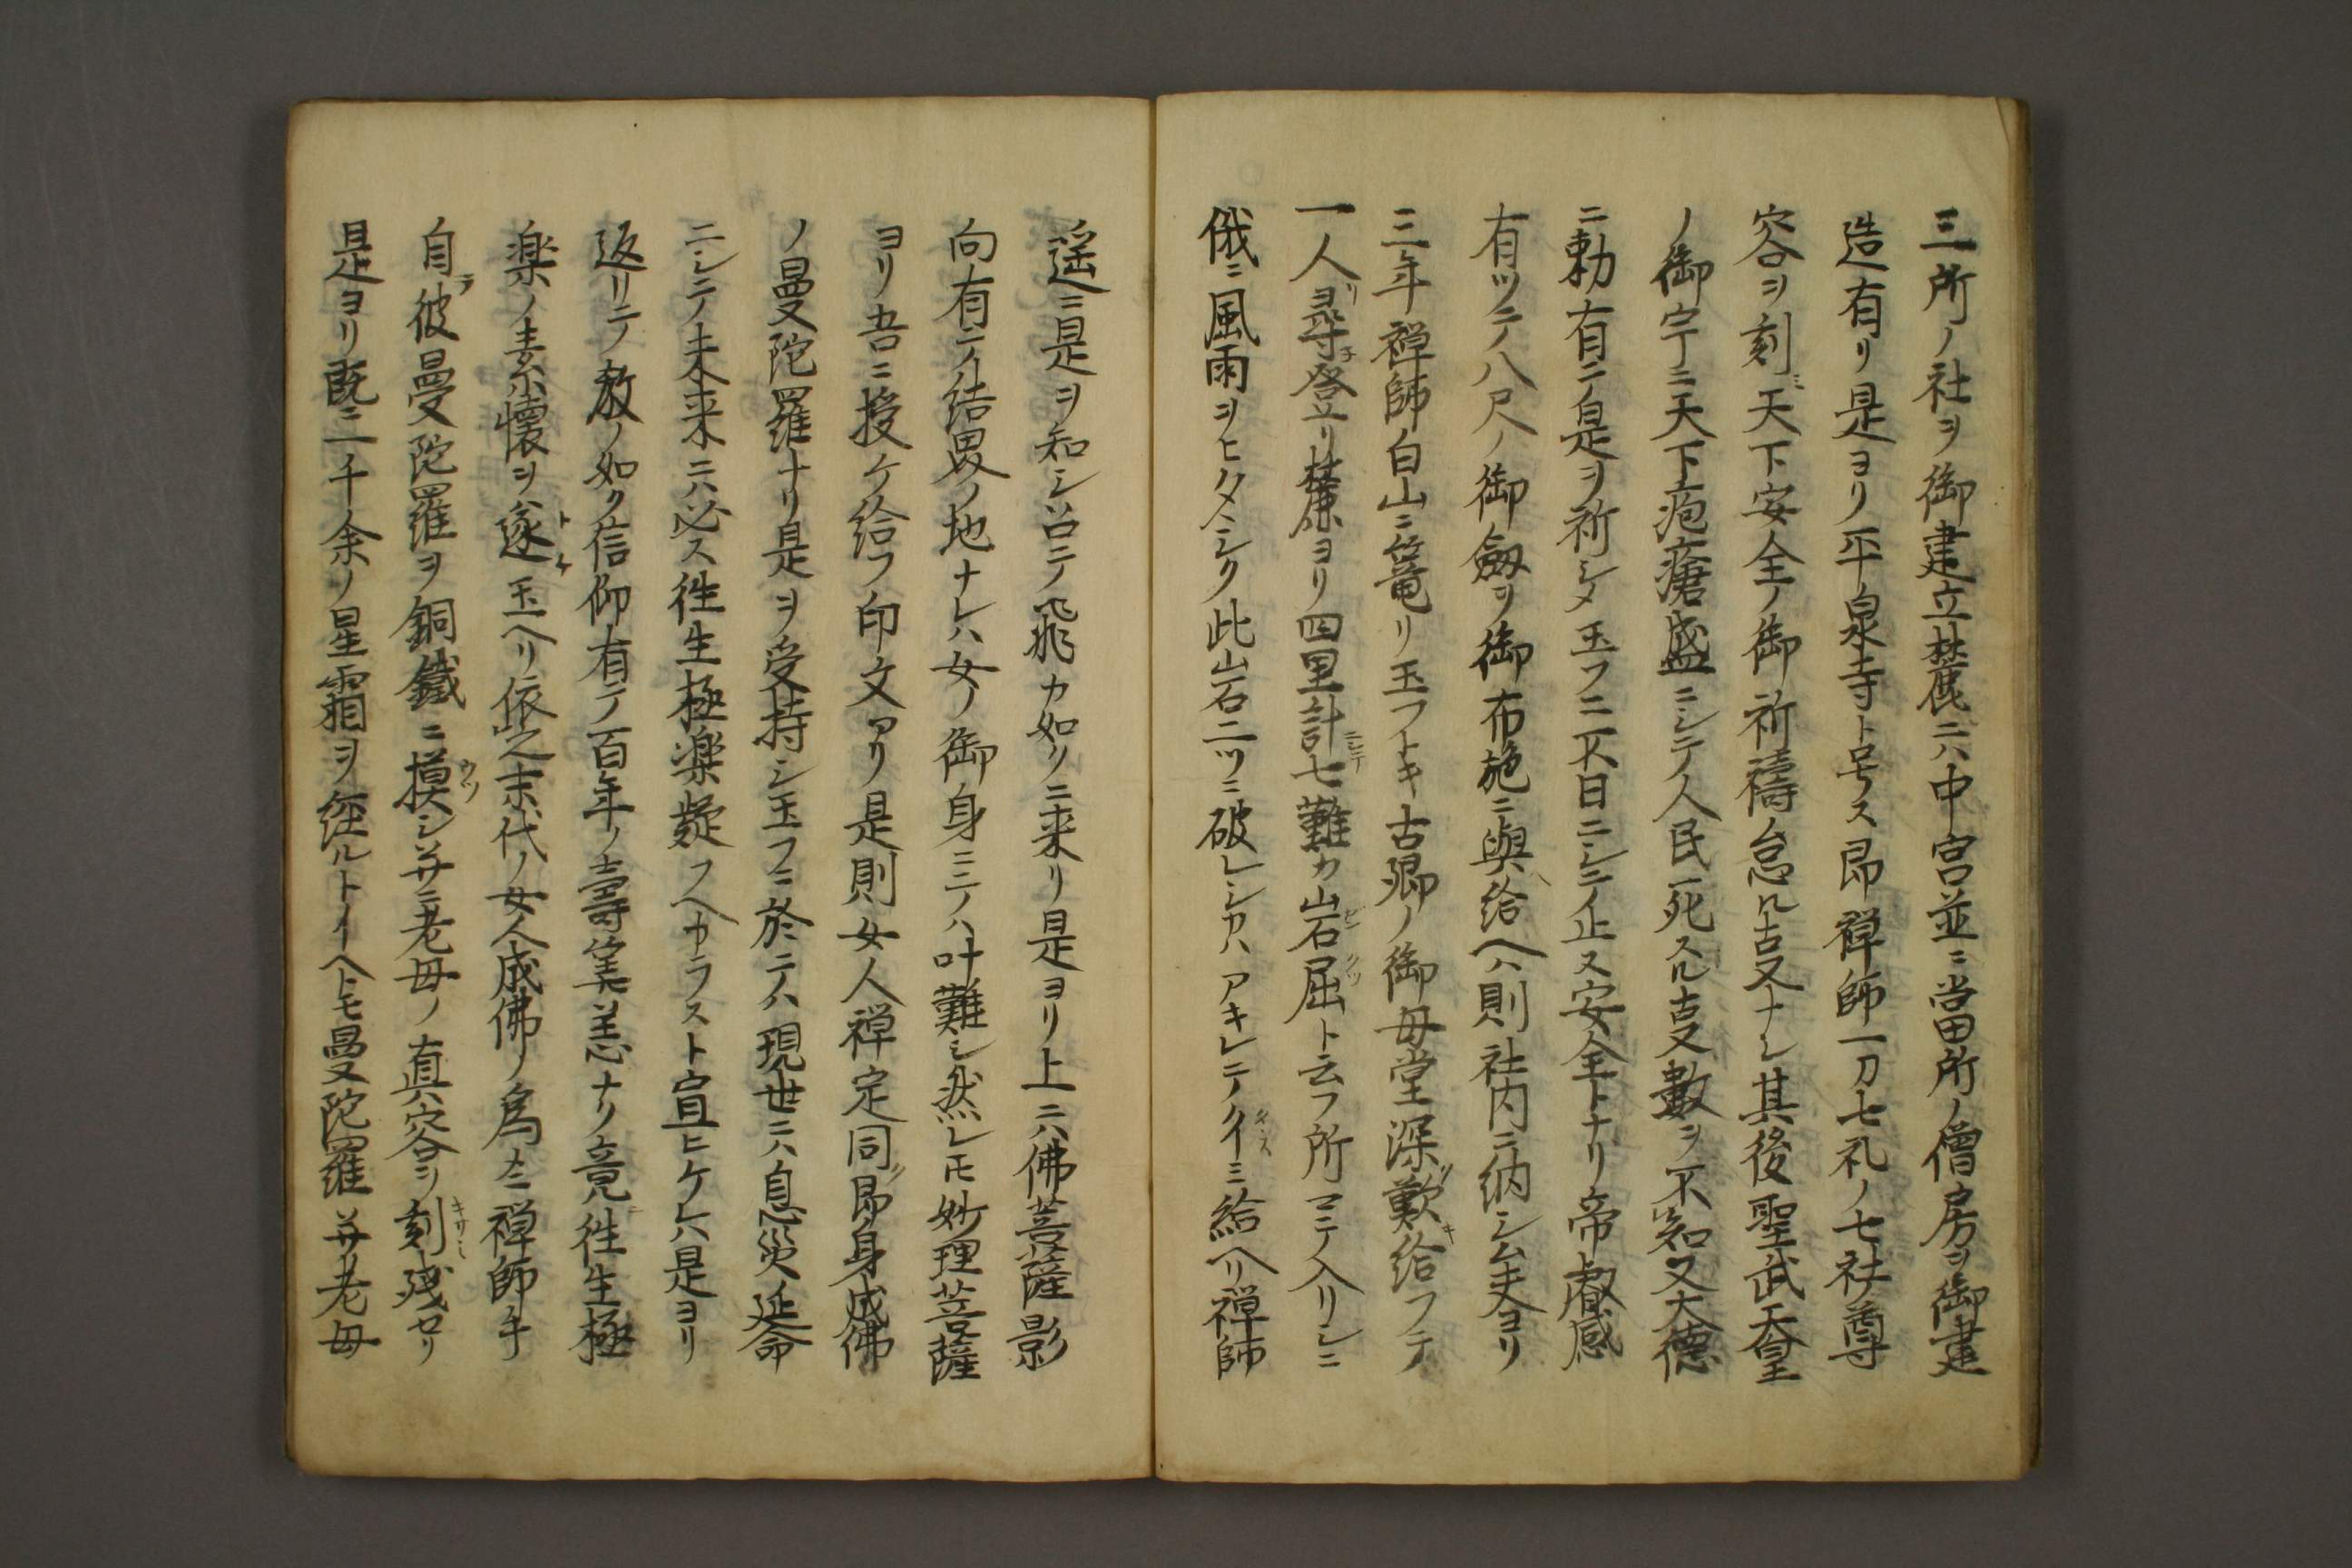 三所ノ社ヲ御建立麓ニハ中宮並ニ當所ノ僧房ヲ御建
造有リ是ヨリ平泉寺ト号ス即禅師一刀七礼ノ七社尊
容ヲ刻ミ天下安全ノ御祈禱怠ル古又ナシ其後聖武天皇
ノ御宇ニ天下疱瘡盛ニシテ人民死スル古又數ヲ不知又大德
ニ勅有テ是ヲ祈シメ玉フニ不日ニシテ止ス安全トナリ帝叡感
有ツテ八尺ノ御劔ヲ御布施ニ與給ヘハ則社内ニ納シム夫ヨリ
三年禅師白山ニ篭リ玉フトキ古郷ノ御母堂深歎キ給フテ
一人尋子登リ麓ヨリ四里計ニシテ七難カ岩屈ト云フ所マテ入リシニ
俄ニ風雨ヲヒタヽシク此岩二ツニ破レシカハアキレテタイミ給ヘリ禅師
遥ニ是ヲ知シ召テ飛カ如クニ来リ是ヨリ上ニハ佛菩薩影
向有テ結界ノ地ナレハ女ノ御身ニテハ叶難シ然レ𪜈妙理菩薩
ヨリ吾ニ授ケ給フ印文アリ是則女人禅定同ク即身成佛
ノ曼陀羅ナリ是ヲ受持シ玉フニ於テハ現世ニハ息災延命
ニシテ未来ニハ必ス徃生極楽疑フヘカラスト宣ヒケレハ是ヨリ
返リテ教ノ如ク信仰有テ百年ノ壽筭恙ナク竟ニ徃生極
楽ノ素懐ヲ遂トケ玉ヘリ依之末代ノ女人成佛ノ為メニ禅師手
自ラ彼曼陀羅ヲ銅鐵ニ摸ウツシ并ニ老母ノ真容ヲ刻キサミ残セリ
是ヨリ既ニ一千余ノ星霜ヲ経ルトイヘトモ曼陀羅并老母